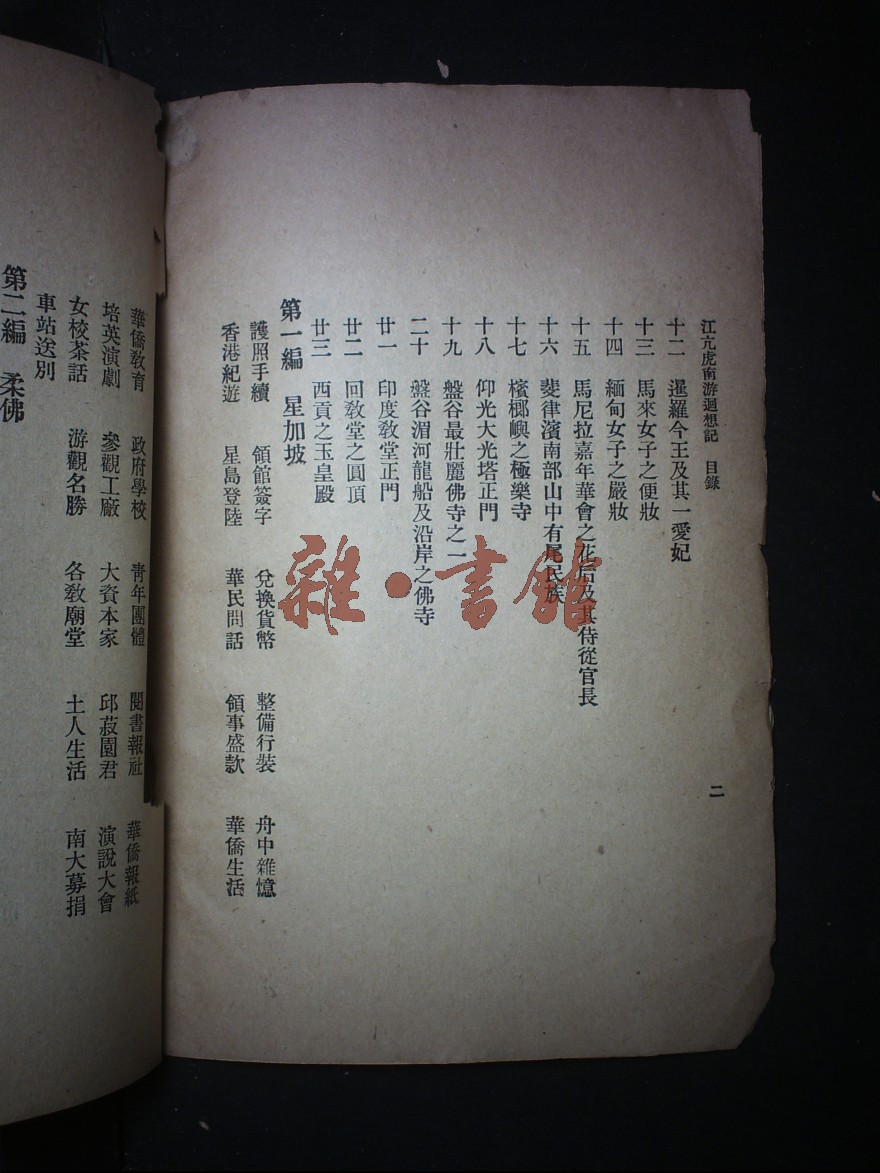 江亢虎南游迴想記 目錄
二
十二 暹羅今王及其一愛妃
十三 馬來女子之便妝
十四 緬甸女子之嚴妝
十五 馬尼拉嘉年華會之花后及其侍從官長
十六 斐律濱南部山中有尾民族
十七 檳榔嶼之極樂寺
十八 仰光大光塔正門
十九 盤谷最壯麗佛寺之一
二十 盤谷湄河龍船及沿岸之佛寺
廿一 印度教堂正門
廿二 回教堂之圓頂
廿三 西貢之玉皇殿
第一編 星加坡
護照手續 領館簽字 兌換貨幣 整備行裝 舟中雜憶
香港紀遊 星島登陸 華民問話 領事盛款 華僑生活
華僑教育 政府學校 青年團體 閱書報社 華僑報紙
培英演劇 參觀工廠 大資本家 邱菽園君 演說大會
女校茶話 游觀名勝 各教廟堂 土人生活 南大募捐
車站送別
第二編 柔佛
雜·書館